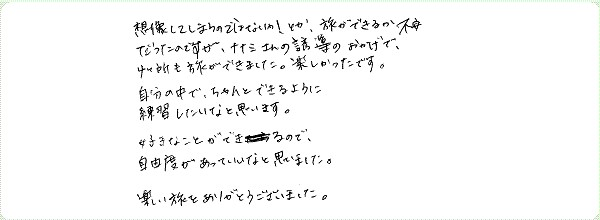 想像してしまうのではないか！とか、旅ができるか不安
だったのですが、ナナミさんの誘導のおかげで、
4ヶ所も旅ができました。楽しかったです。
自分の中で、ちゃんとできるように
練習したいなと思います。
好きなことができるので、
自由度があっていいなと思いました。
楽しい旅をありがとうございました。